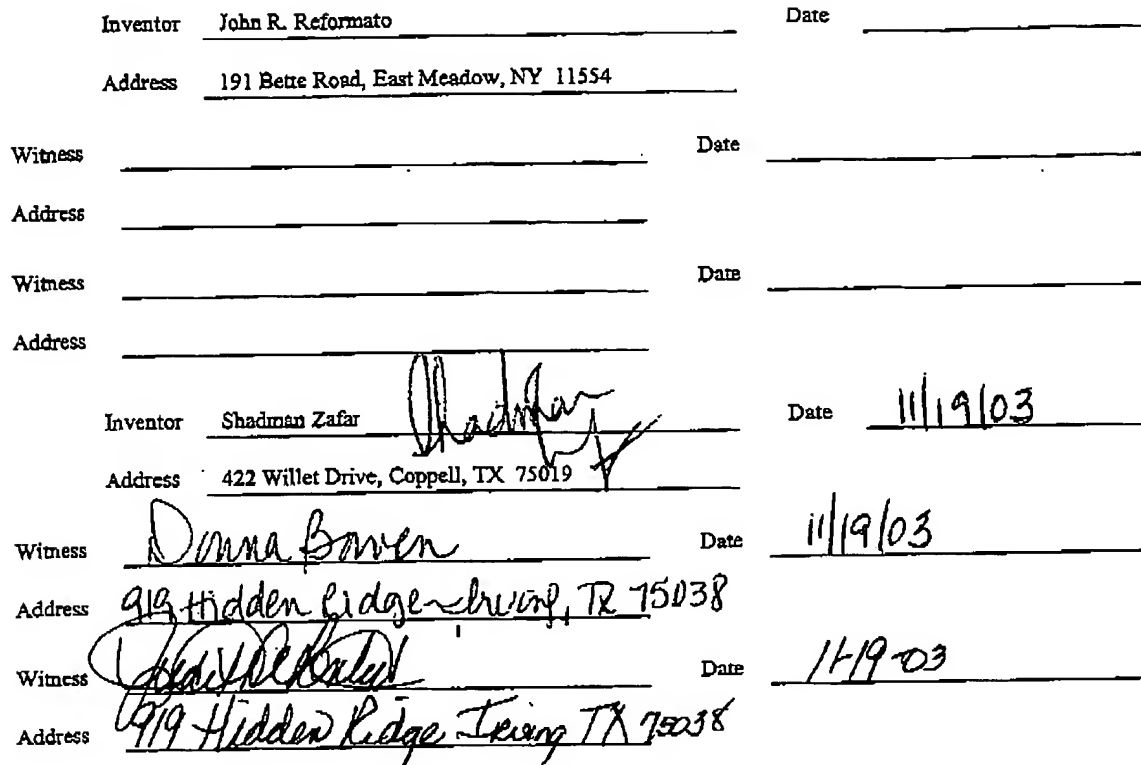 Inventor John R. Reformato Date
Address 191 Bette Road, East Meadow, NY 11554
Witness Date
Address
Witness Date
Address
Inventor Shadman Zafar Date 11/19/03
Address 422 Willet Drive, Coppell, TX 75019
Witness Donna Bowen Date 11/19/03
Address 919 Hidden Ridge - Irving, TX 75038
Witness Date 11-19-03
Address 919 Hidden Ridge Irving TX 75038